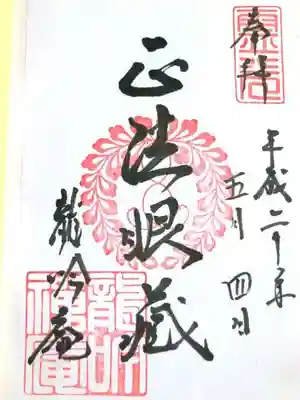 奉拝
平成二十年
五月四日
正法眼藏
龍吟庵
龍吟
禅庵